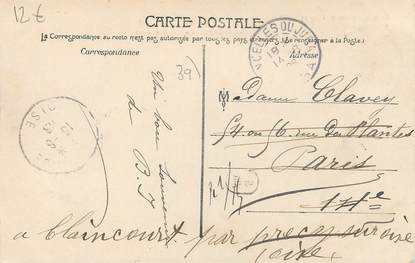 12€
CARTE POSTALE
La Correspondance au recto n'est pas autorisée par tous les pays étrangers (Se renseigner à la Poste)
Correspondance
Adresse
39
Un bon Souvenir
de B. J
CELLES DU JURA
OISE
Madame Clavey
54 ou 56 rue des Plantes
Paris
14e
a Blaincourt par précy sur oise
(oise)